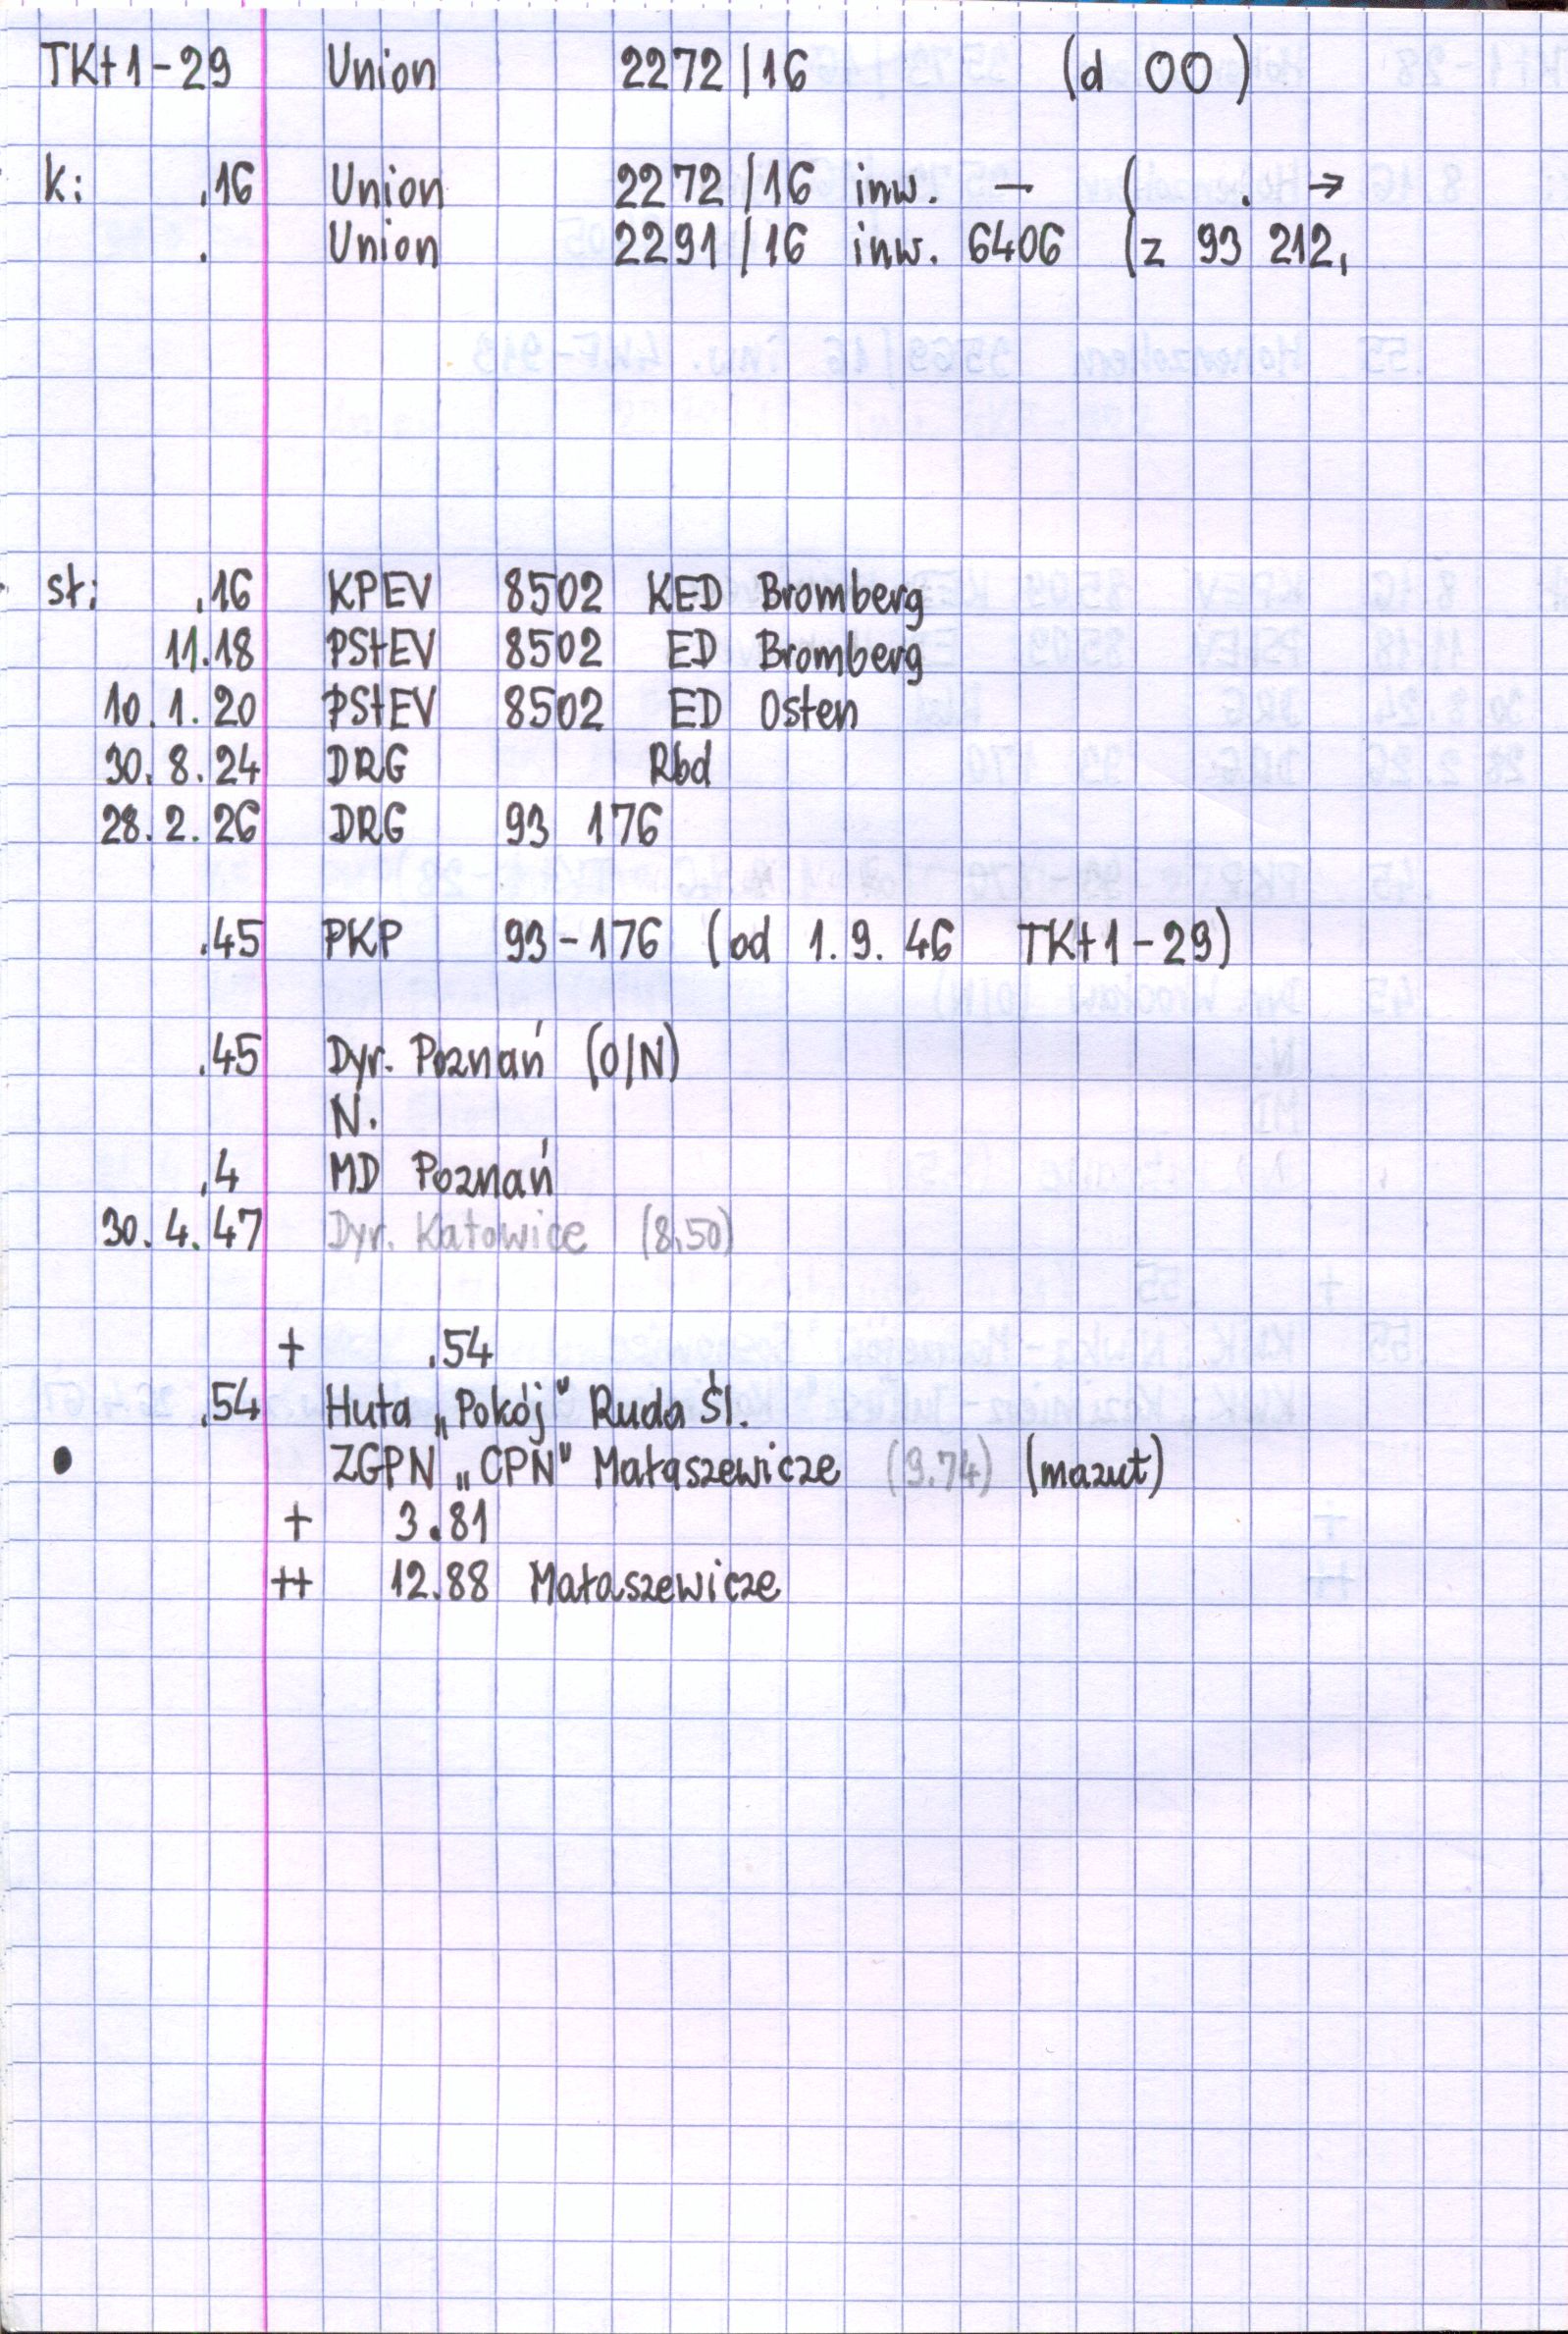 TKt1-29 Union 2272/16 (d OO)
k: .16 Union 2272/16 inw. — ( . →
. Union 2291/16 inw. 6406 (z 93 212,
st: .16 KPEV 8502 KED Bromberg
11.18 PStEV 8502 ED Bromberg
10.1.20 PStEV 8502 ED Osten
30.8.24 DRG Rbd
28.2.26 DRG 93 176
.45 PKP 93-176 (od 1.9.46 TKt1-29)
.45 Dyr. Poznań (O/N)
N.
.4 MD Poznań
30.4.47 Dyr. Katowice (8.50)
+ .54
.54 Huta „Pokój" Ruda Śl.
• ZGPN „CPN" Małaszewicze (9.74) (mazut)
+ 3.81
++ 12.88 Małaszewicze